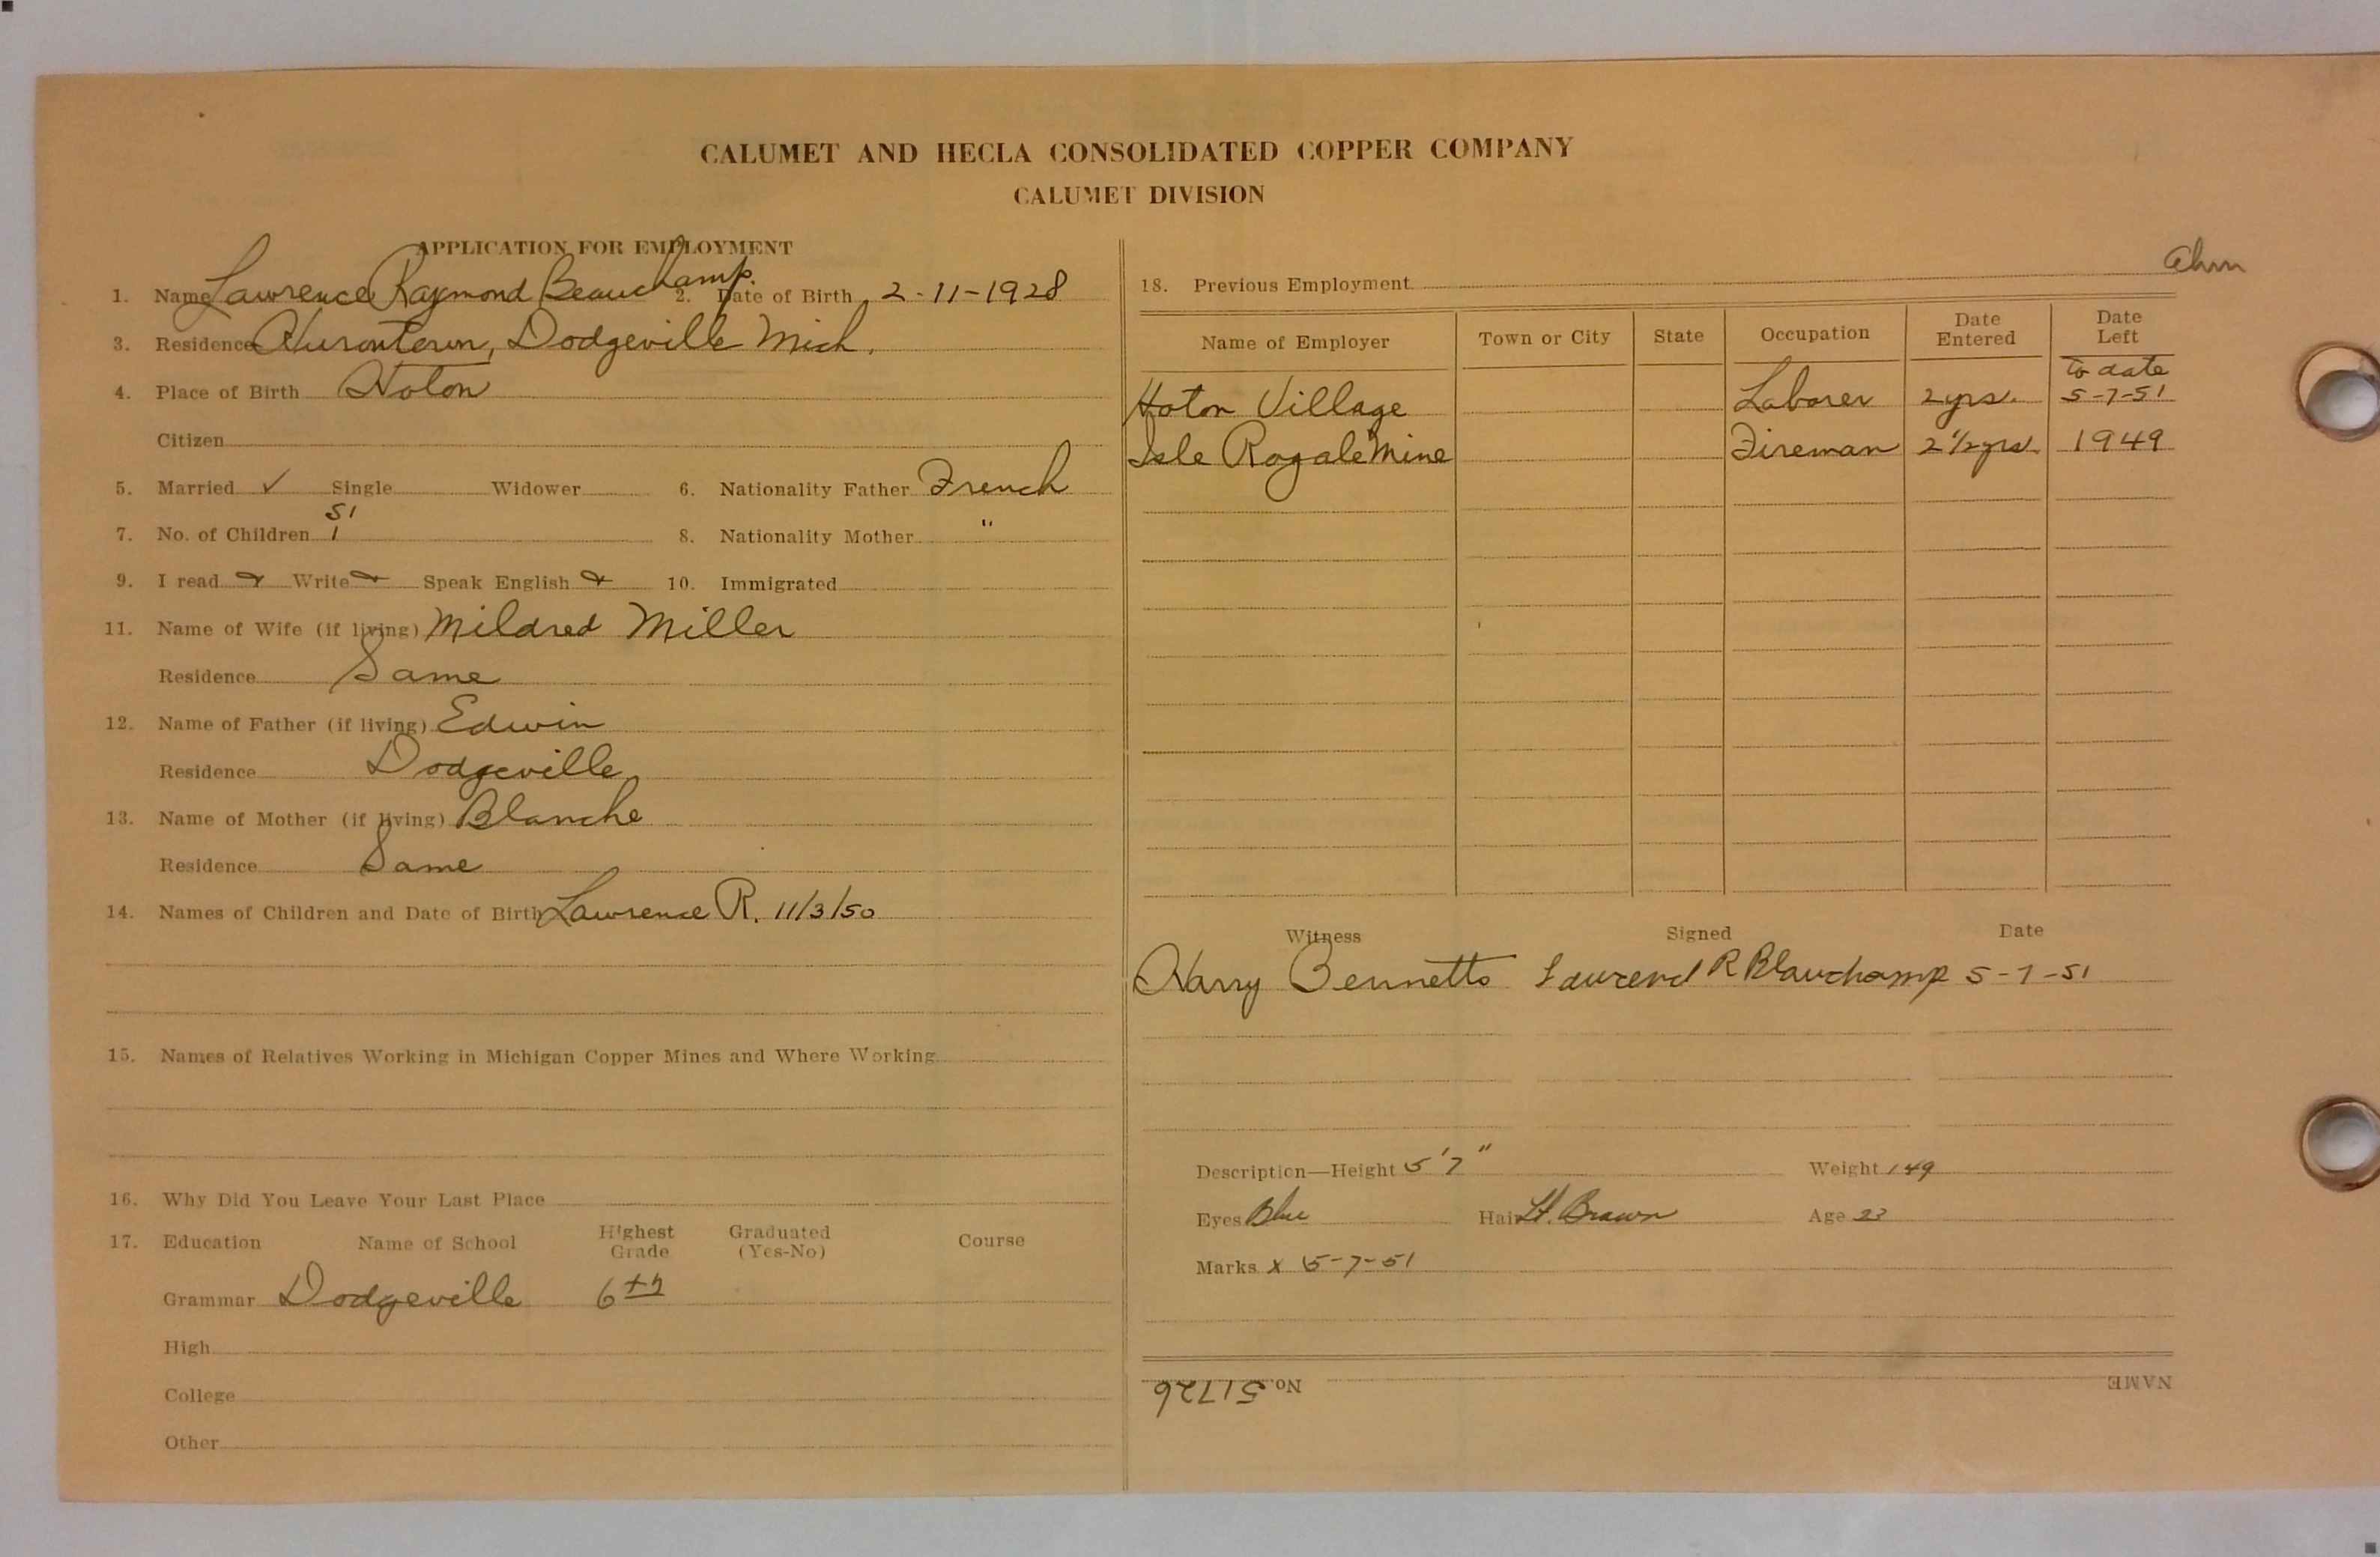 CALUMET AND HECLA CONSOLIDATED COPPER COMPANY
CALUMET DIVISION
APPLICATION FOR EMPLOYMENT
1. Name Lawrence Raymond Beauchamp. 2. Date of Birth 2-11-1928
3. Residence Hurontown, Dodgeville Mich.
4. Place of Birth Hoton
Citizen
5. Married ✓ Single Widower 6. Nationality Father French
S1
7. No. of Children 1 8. Nationality Mother "
9. I read Write Speak English 10. Immigrated
11. Name of Wife (if living) Mildred Miller
Residence Same
12. Name of Father (if living) Edwin
Residence Dodgeville
13. Name of Mother (if living) Blanche
Residence Same
14. Names of Children and Date of Birth Lawrence R. 11/3/50
15. Names of Relatives Working in Michigan Copper Mines and Where Working
16. Why Did You Leave Your Last Place
17. Education Name of School Highest Grade Graduated (Yes-No) Course
Grammar Dodgeville 6th
High
College
Other
18. Previous Employment
Name of Employer Town or City State Occupation Date Entered Date Left
to date
Hoton Village Laborer 2 yrs. 5-7-51
Isle Royale Mine Fireman 2 1/2 yrs. 1949
Witness Signed Date
Harry Bennetts Lawrence R Beauchamp 5-7-51
Description—Height 5'7" Weight 149
Eyes Blue Hair Lt. Brown Age 23
Marks x 5-7-51
No. 51726 NAME